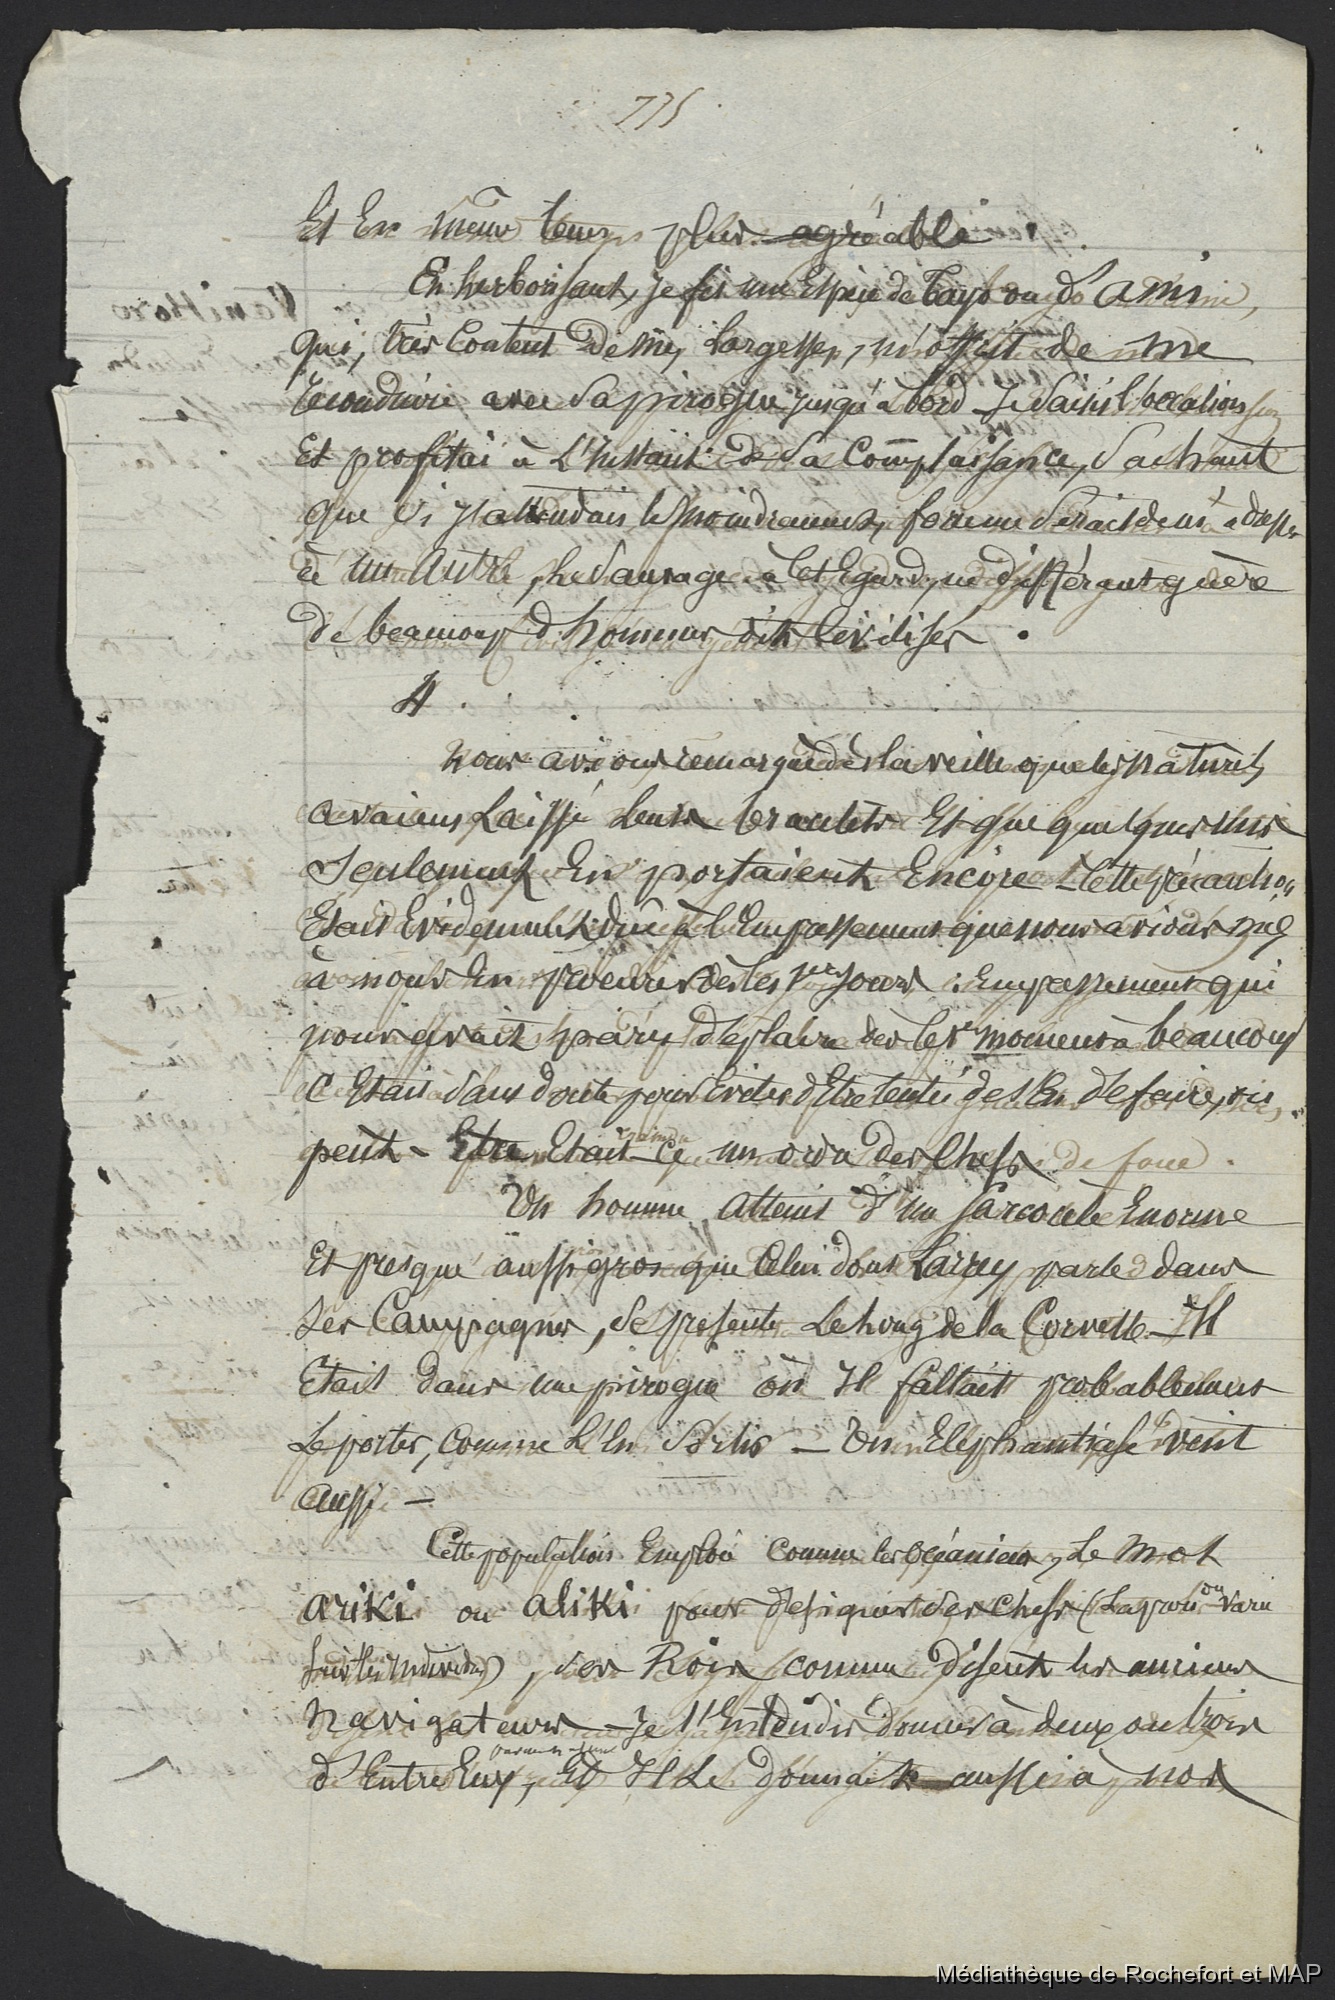 775
Et En même temps plus agréable.
En herborisant, je fis une Espèce de tayo ou d'ami,
qui, très Content de mes Largesses, m'offrit de me
reconduire avec sa pirogue jusqu'à bord _ Je saisis l'occasion
Et profitai à L'Instant de sa Complaisance, sachant
que si j'attendais le moindrement, sa
à un autre, le sauvage à cet Egard, ne différant guère
de beaucoup d'hommes dits Civilisés.
4.
Nous avions remarqué dès la veille que les naturels
avaient Laissé Leurs bracelets Et que quelques uns
Seulement En portaient Encore _ Cette précaution
Etait Evidemment due à l'Empressement que nous avions mis
à nous En procurer dès les 1ers Jours : Empressement qui
nous avait paru déplaire dès le 1er moment à beaucoup
C'Etait sans doute pour Eviter d'Etre tentés de s'En défaire, ou
peut-Etre Etait-Ce un ordre des Chefs
Un homme Atteint d'un Sarcocèle Enorme
Et presque aussi gros que Celui dont Larrey parle dans
ses Campagnes, se présenta Le long de la Corvette _ Il
Etait dans une pirogue où Il fallait probablement
Le porter, comme L'En Sortir _ Un Eléphantiasé vint
aussi _
Cette population Emploie comme les océaniens, Le mot
ariki ou aliki pour désigner des Chefs (La prononc. ou varie
suivant les individus), des Rois comme disent les anciens
Navigateurs _ Je l'Entendis donner à deux ou trois
d'Entre Eux, Et Il Le donnait aussi à nos
Médiathèque de Rochefort et MAP